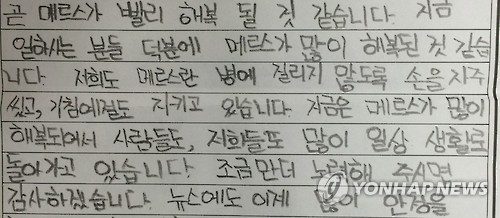 곧 메르스가 빨리 해복 될 것 같습니다. 지금
일하시는 분들 덕분에 메르스가 많이 해복된 것 같습
니다. 저희도 메르스란 병에 걸리지 않도록 손을 자주
씻고, 기침예절도 지키고 있습니다. 지금은 메르스가 많이
해복되어서 사람들도, 저희들도 많이 일상 생활로
돌아가고 있습니다. 조금만더 노력해 주시면
감사하겠습니다. 뉴스에도 이제 많이 안정을
YONHAPNEWS